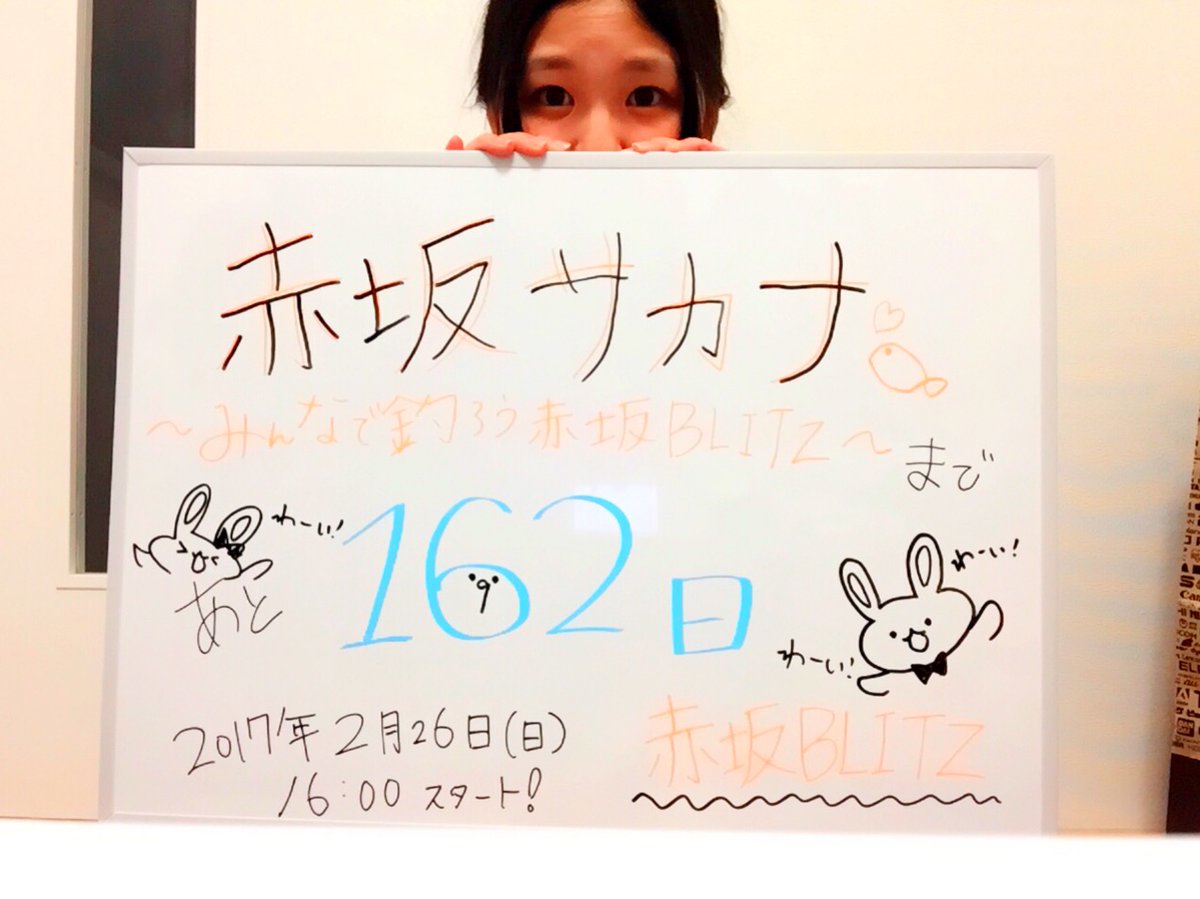 赤坂サカナ
～みんなで釣ろう赤坂BLITZ～
まで
わーい!
あと
162日
わーい!
わーい!
2017年2月26日(日)
16:00 スタート!
赤坂BLITZ